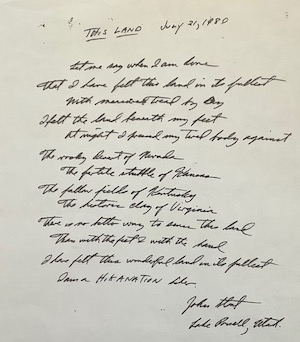 THIS LAND July 21, 1980
Let me say when I am done
That I have felt this land in its fullest
With measured tread by Day
I felt the land beneath my feet
At night I pressed my tired body against
The rocky desert of Nevada
The fertile stubble of Kansas
The fallow fields of Kentucky
The historic clay of Virginia
There is no better way to sense this land
Than with the feet & with the hand
I have felt this wonderful land in its fullest
I am a HIKANATION hiker
John Stout
Lake Powell, Utah.